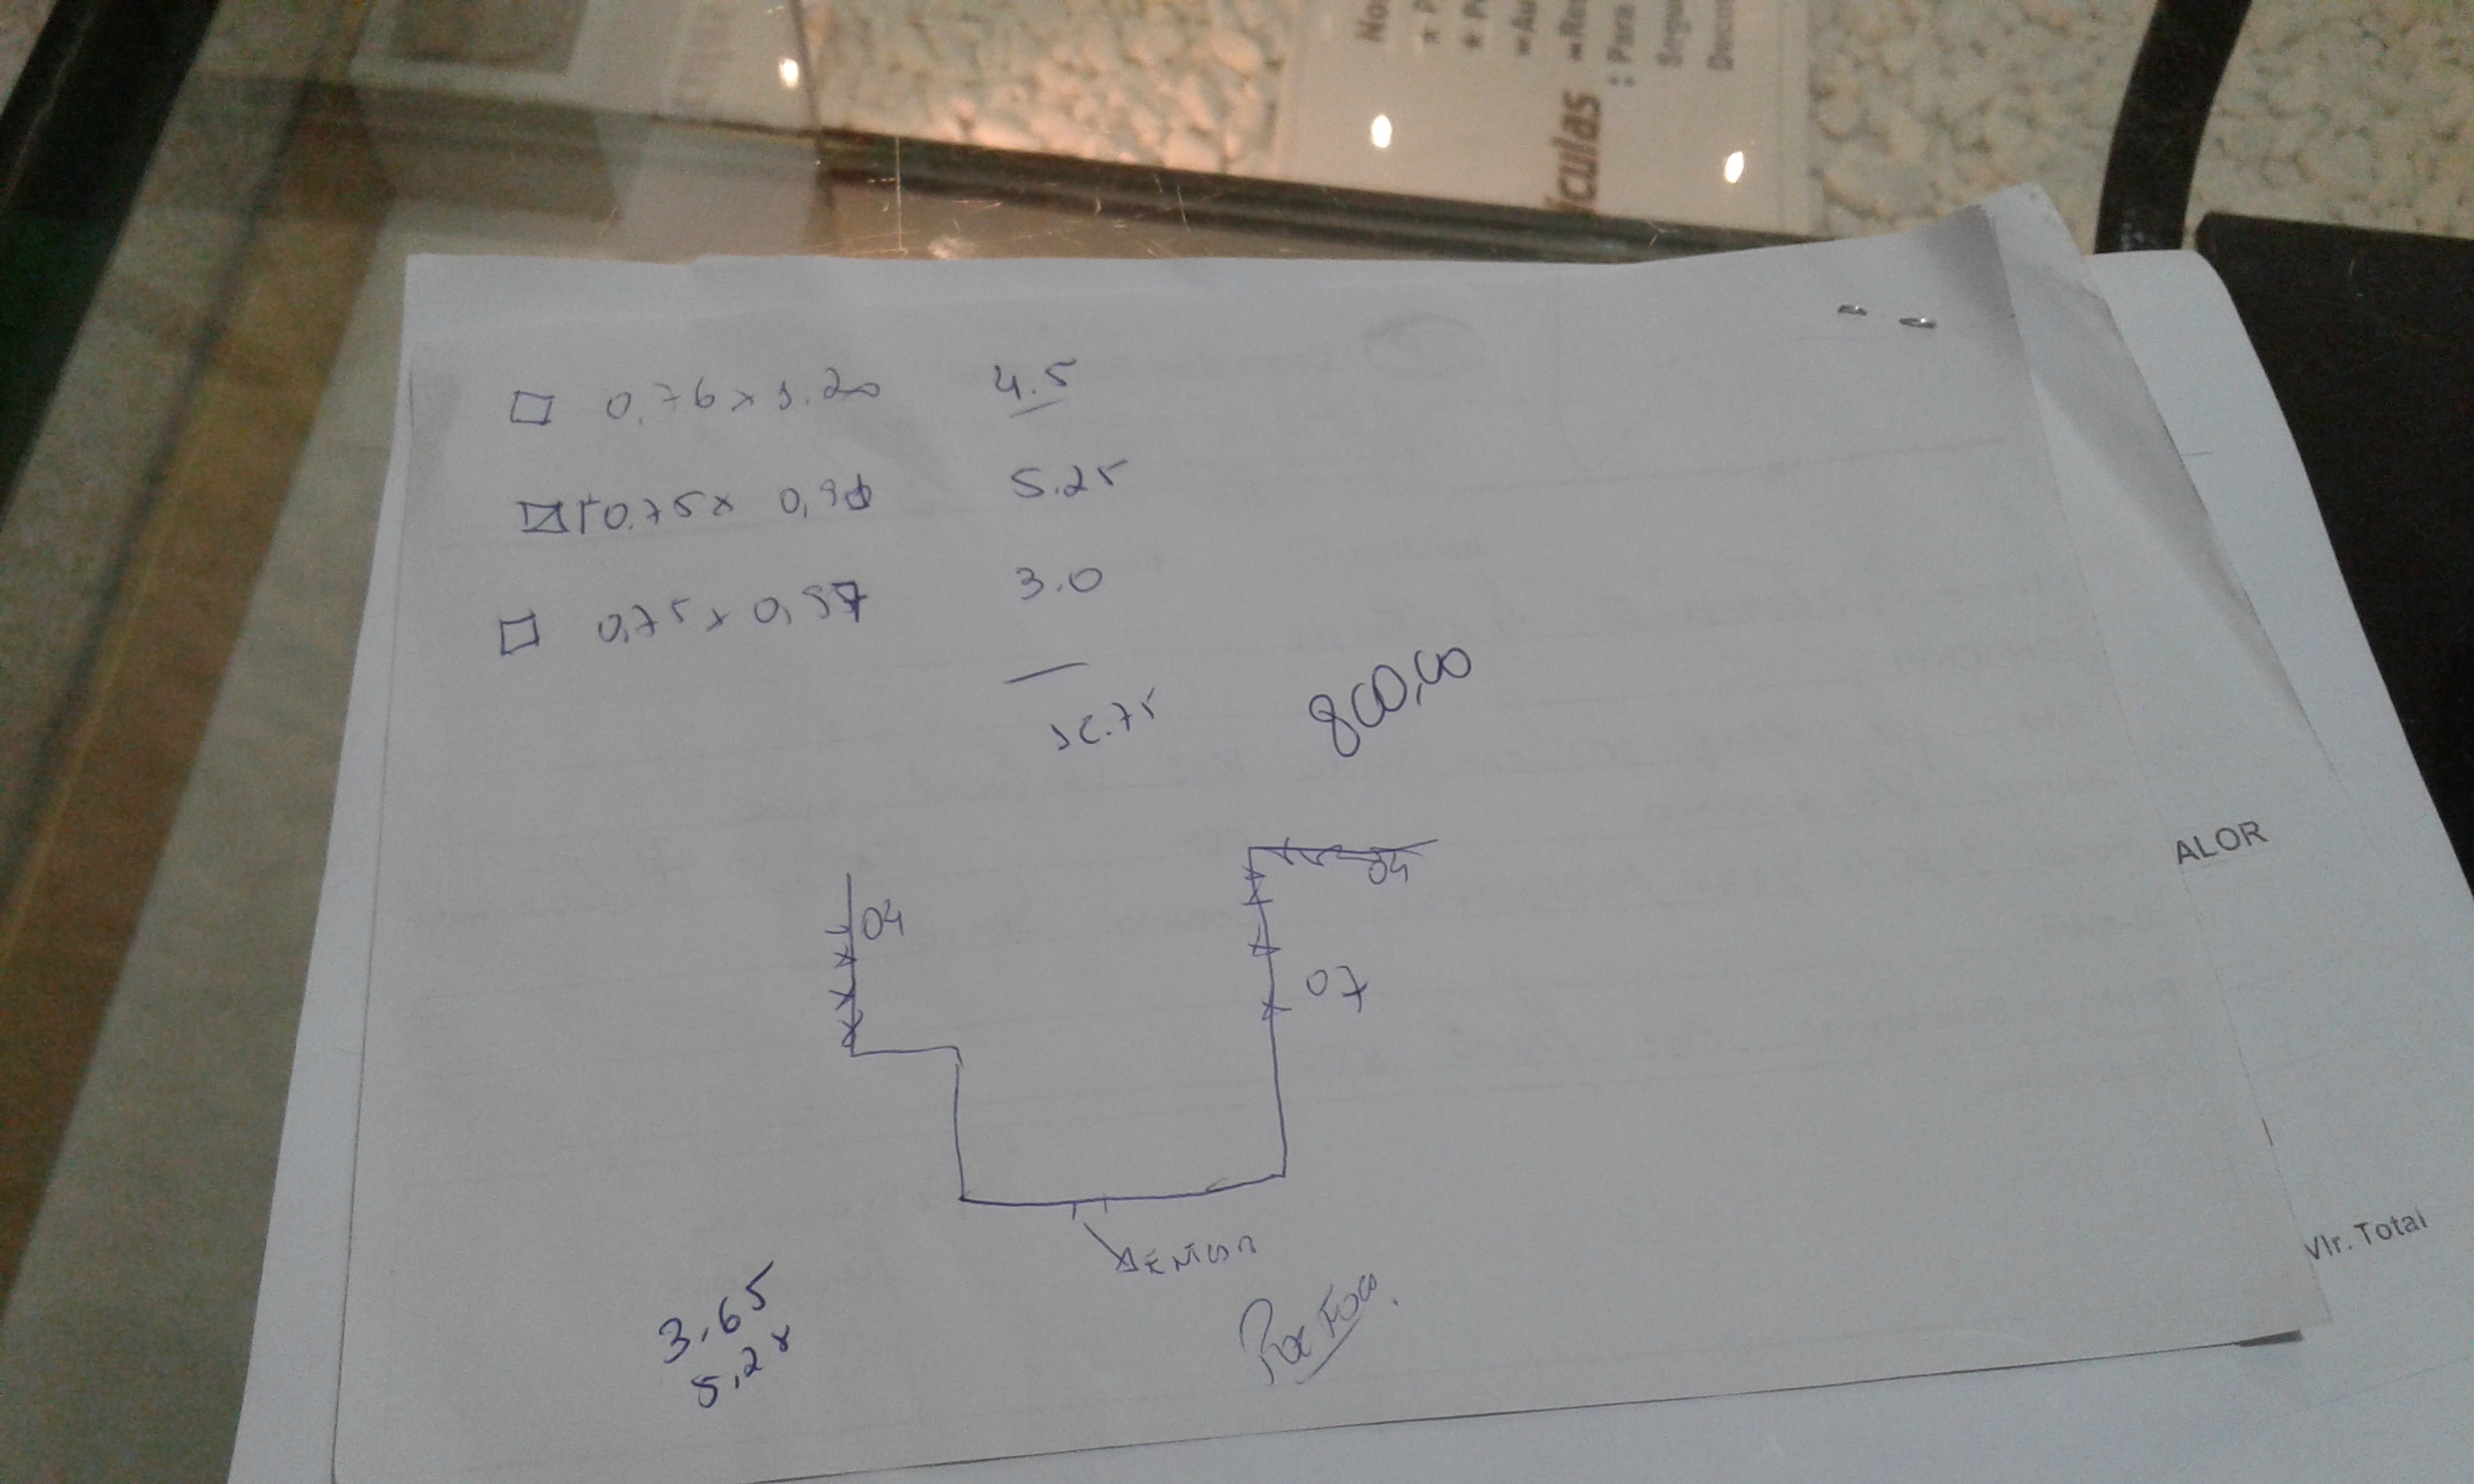 No
Au
Res
: Para
Segu
Docu
ículas
0,76 x 1.20 4.5
0.75 x 0,90 5.25
0,75 x 0,57 3.0
12.75
800,00
04
04
07
3.65
5,28
ALOR
Vlr. Total